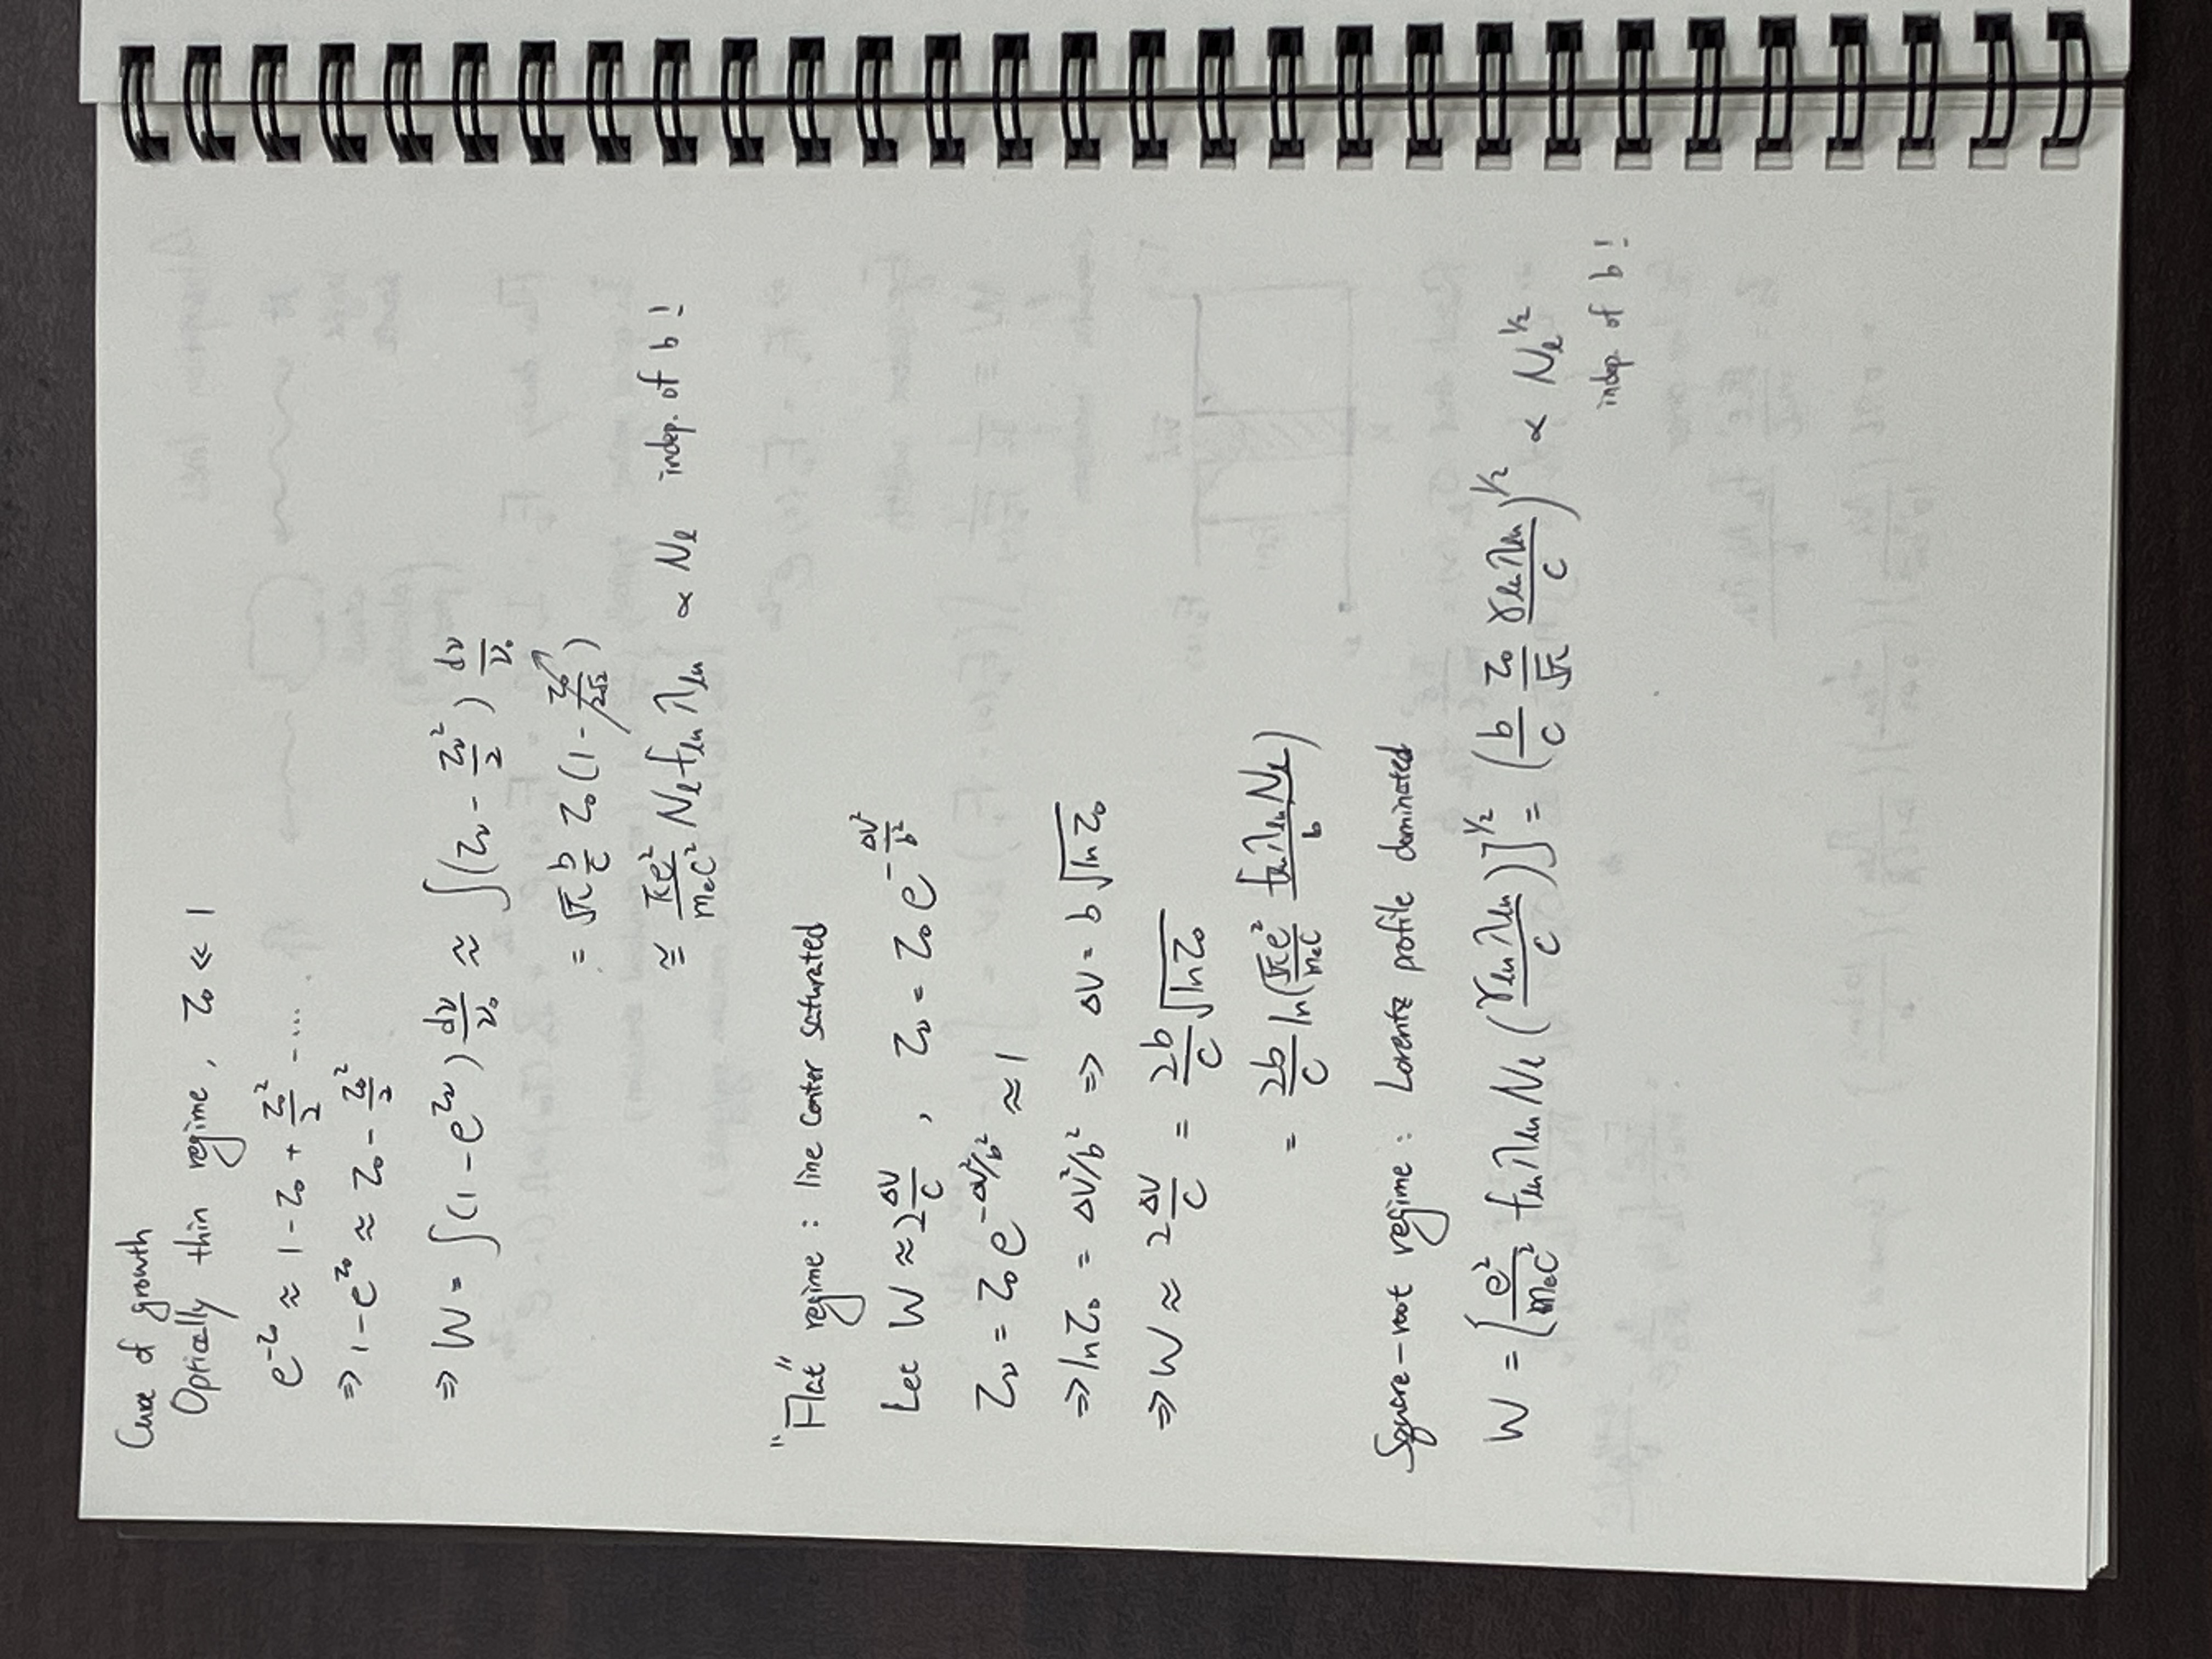 Curve of growth
Optically thin regime, τ₀ ≪ 1
e^{-τ₀} ≈ 1 - τ₀ + τ₀²/2 - ....
⇒ 1 - e^{τ₀} ≈ τ₀ - τ₀²/2
⇒ W = ∫(1 - e^{τ_ν}) dν/ν₀ ≈ ∫(τ_ν - τ_ν²/2) dν/ν₀
= √π b/c τ₀ (1 - τ₀/2√2)
≅ πe²/mₑc² N_ℓ f_ℓu λ_ℓu ∝ N_ℓ indep. of b !
"Flat" regime : line center saturated
Let W ≈ 2 ΔV/c , τ_ν = τ₀ e^{-ΔV²/b²}
τ_ν = τ₀ e^{-ΔV²/b²} ≈ 1
⇒ ln τ₀ = ΔV²/b² ⇒ ΔV = b √(ln τ₀)
⇒ W ≈ 2 ΔV/c = 2b/c √(ln τ₀)
= 2b/c ln(√π e²/mₑc f_ℓu λ_ℓu N_ℓ/b)
Square-root regime : Lorentz profile dominated
W = [e²/mₑc² f_ℓu λ_ℓu N_ℓ (γ_ℓu λ_ℓu/c)]^{1/2} = (b/c τ₀/√π γ_ℓu λ_ℓu/c)^{1/2} ∝ N_ℓ^{1/2}
indep. of b !